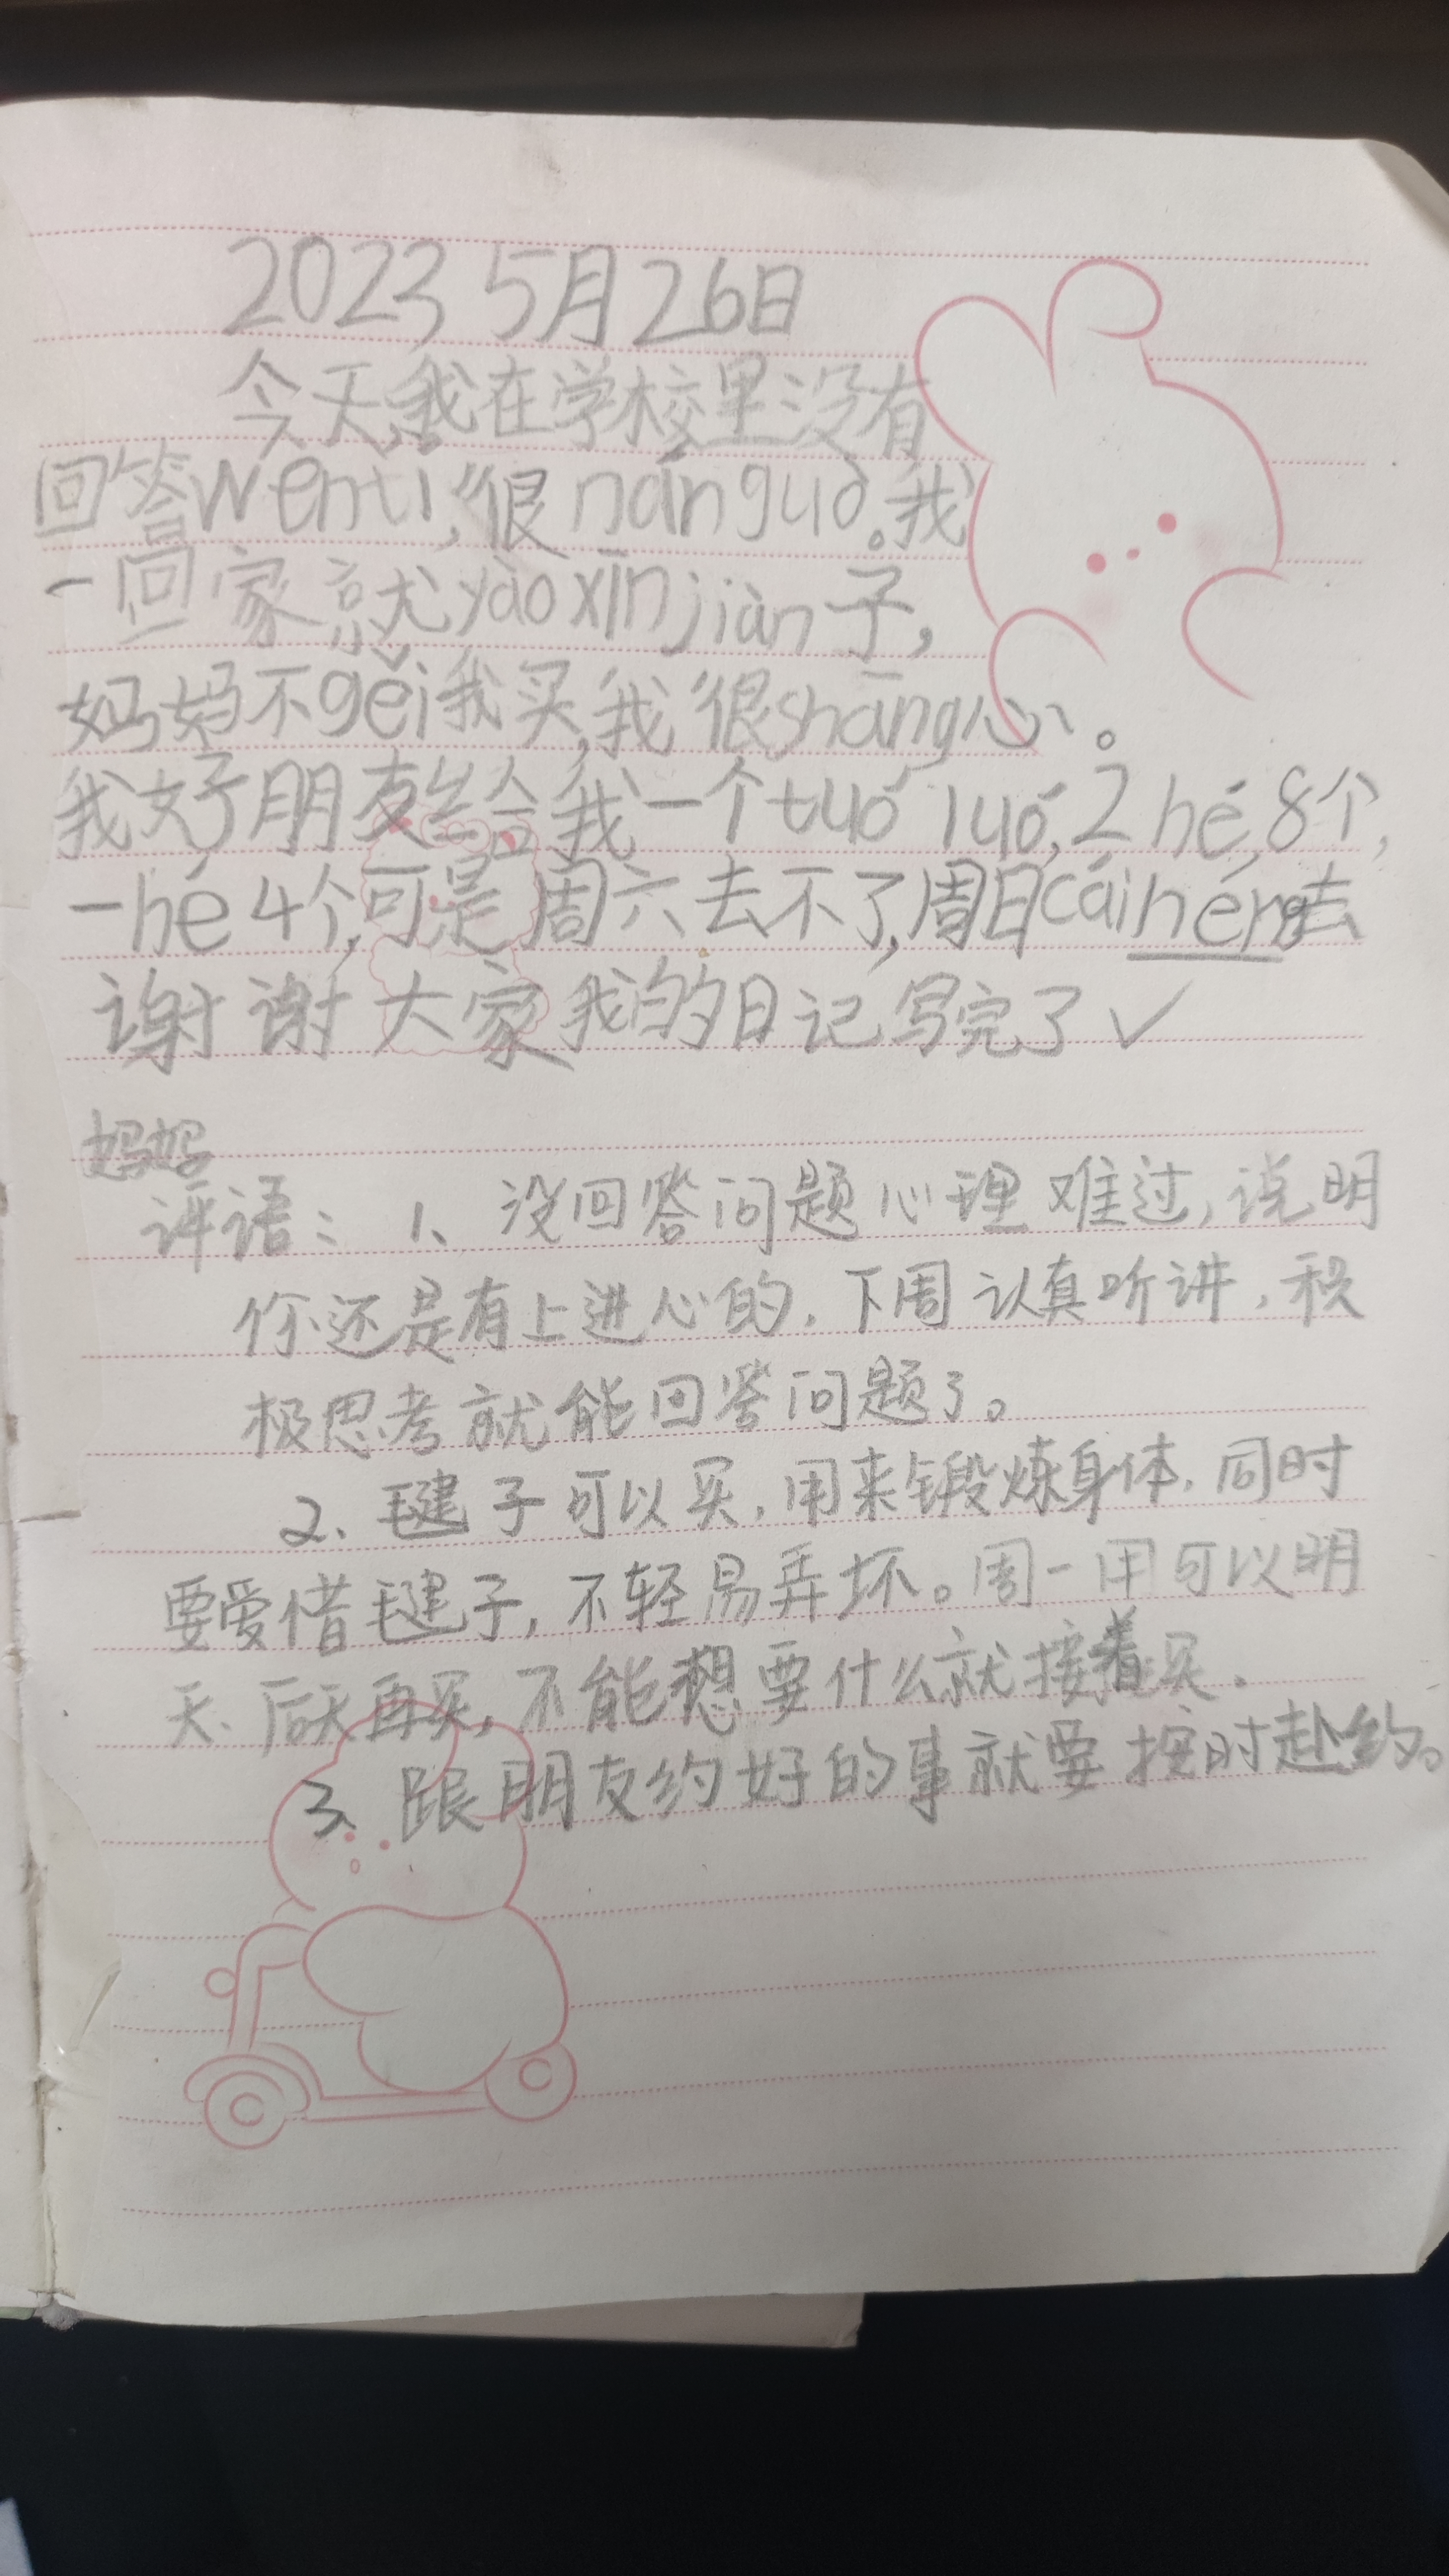 2023 5月26日
今天,我在学校里没有
回答wenti,很nánguò。我
一回家就yàoxīnjiàn子,
妈妈不gěi我买,我很shāng心。
我好朋友给我一个tuó luó,2 hé,8个,
一hé 4个,可是周六去不了,周日cáinéng去
谢谢大家我的日记写完了✓
妈妈
评语：1、没回答问题心理难过,说明
你还是有上进心的,下周认真听讲,积
极思考就能回答问题了。
2、毽子可以买,用来锻炼身体,同时
要爱惜毽子,不轻易弄坏。周一用可以明
天、后天再买,不能想要什么就接着买.
3、跟朋友约好的事就要按时赴约。